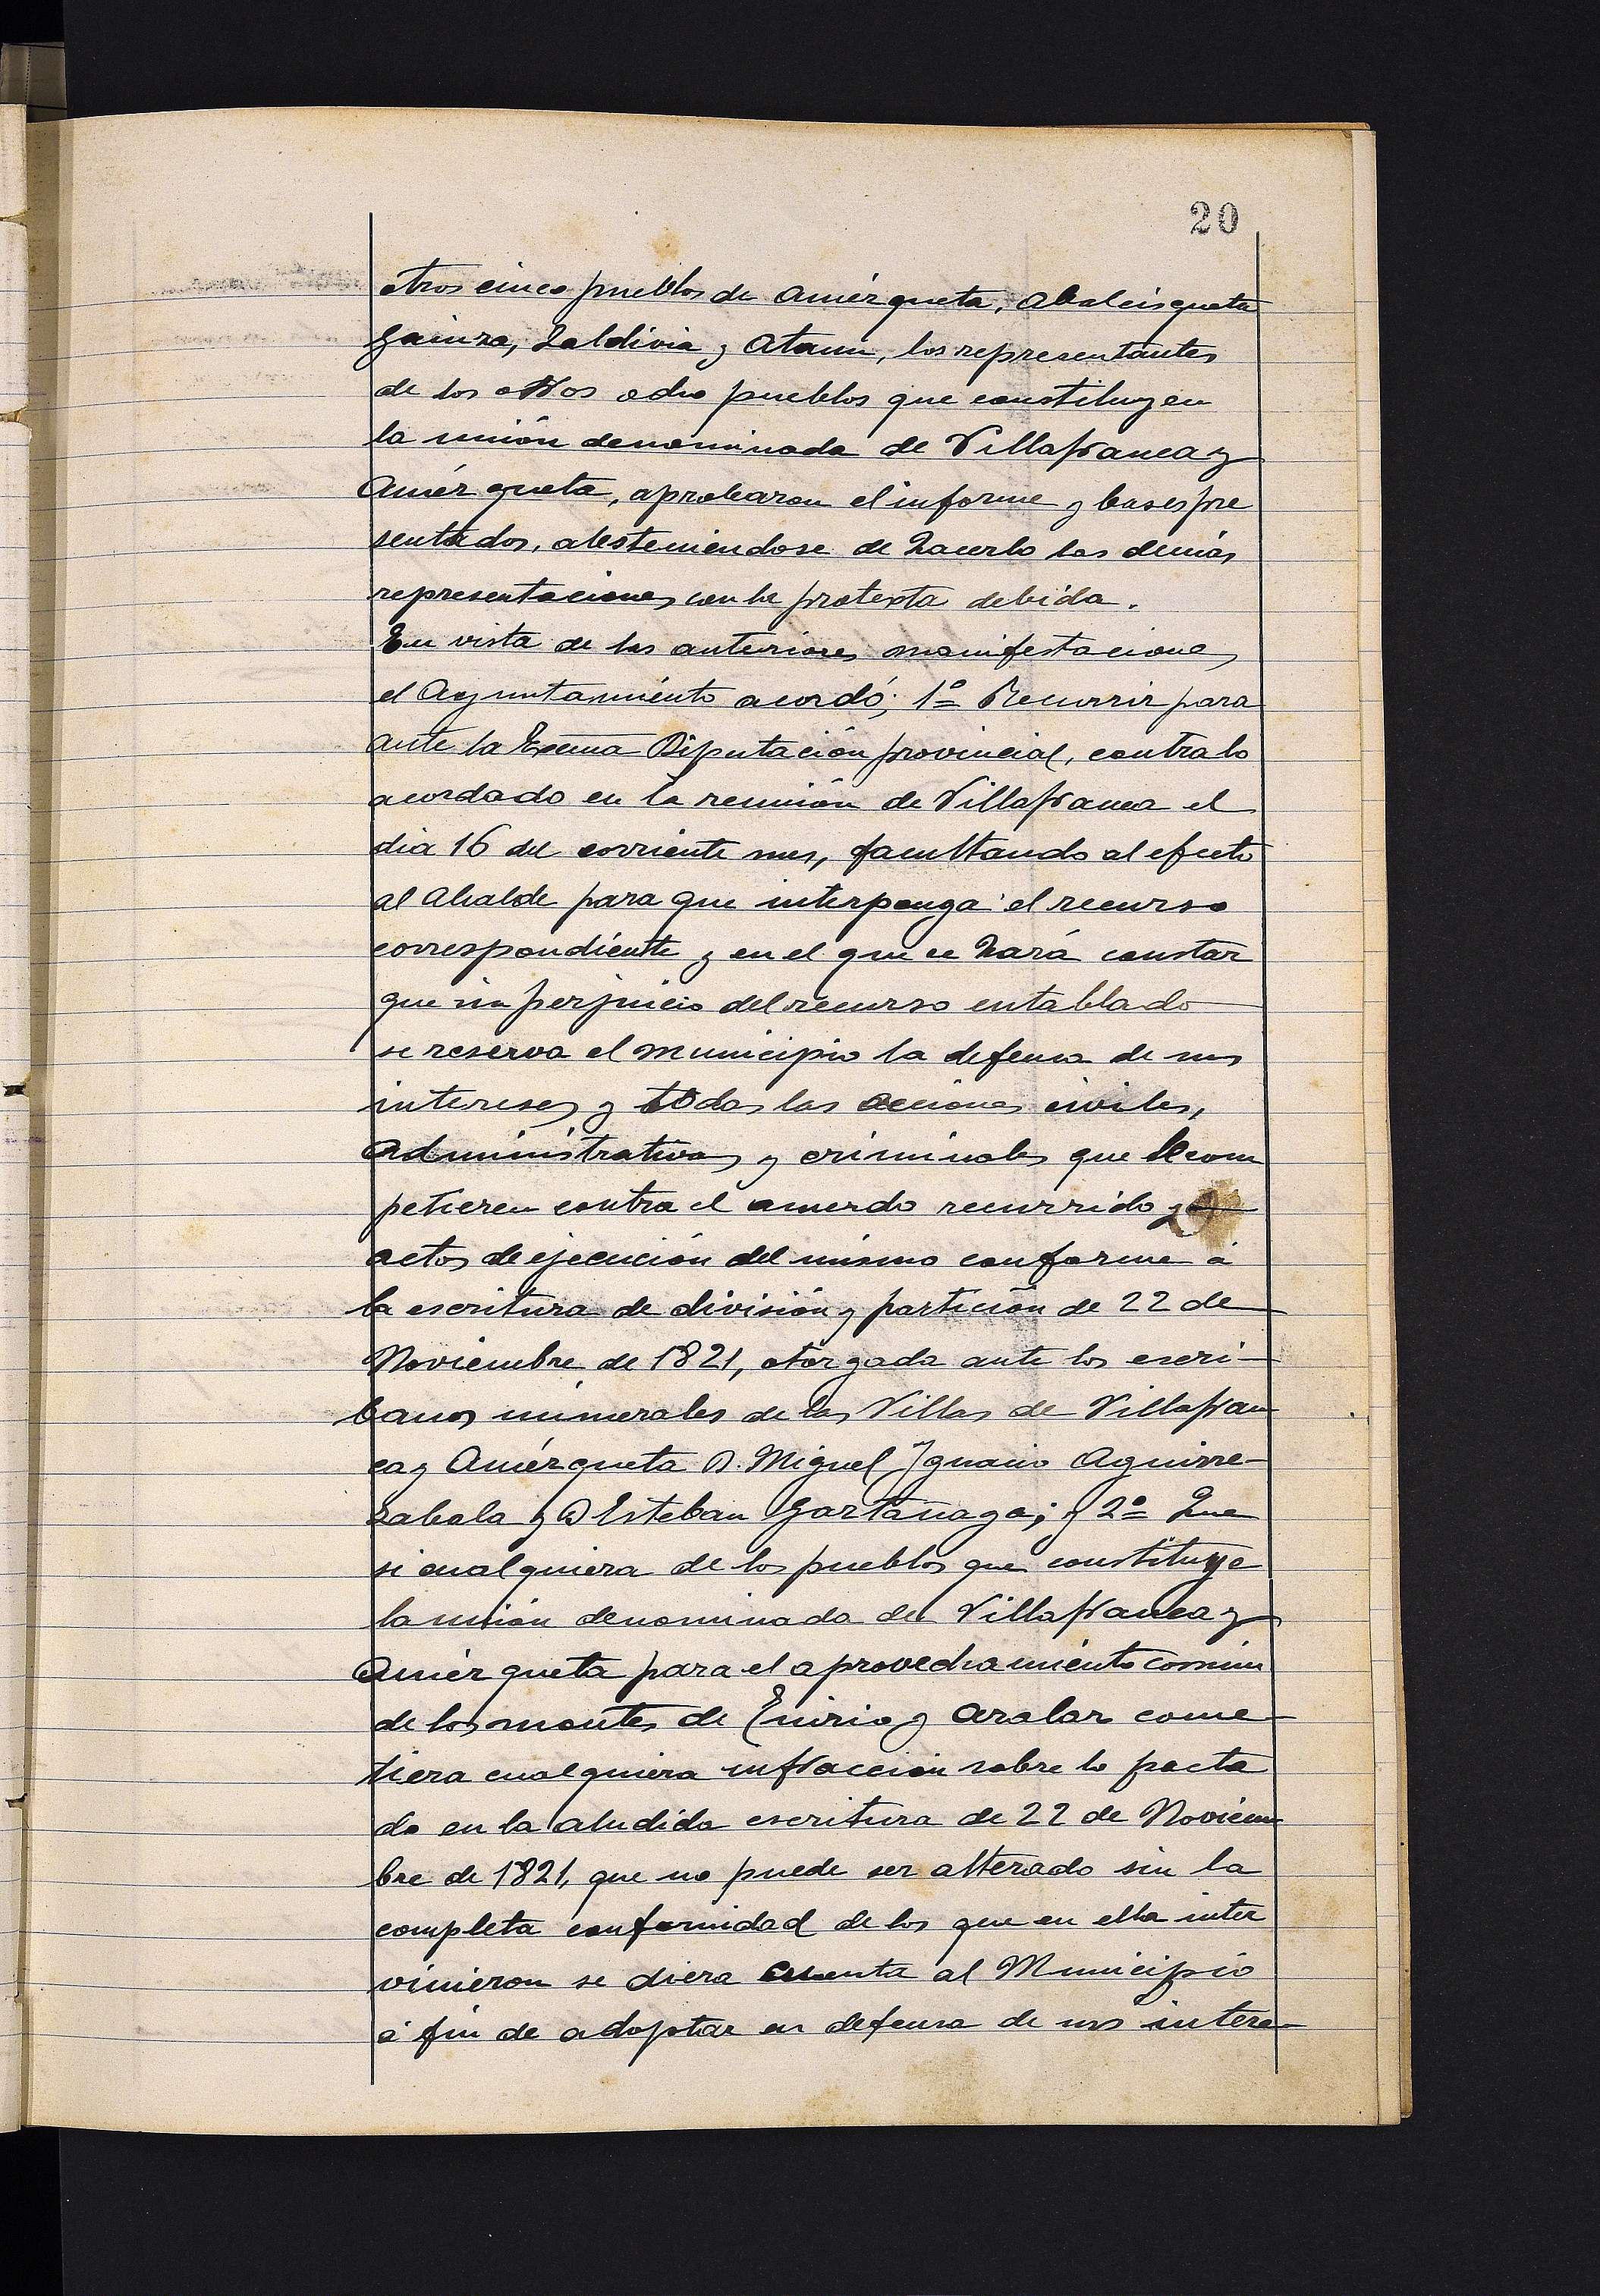 20
otros cinco pueblos de Amézqueta, Abalcisqueta
Gainza, Zaldivia y Ataun, los representantes
de los otros ocho pueblos que constituyen
la unión denominada de Villafranca y
Amézqueta, aprobaron el informe y bases pre
sentados, absteniendose de hacerlo las demás
representaciones con la protesta debida.
En vista de las anteriores manifestaciones
el Ayuntamiento acordó; 1º Recurrir para
ante la Excma Diputación provincial, contra lo
acordado en la reunión de Villafranca el
dia 16 del corriente mes, facultando al efecto
al Alcalde para que interponga el recurso
correspondiente y en el que se hará constar
que sin perjuicio del recurso entablado
se reserva el municipio la defensa de sus
intereses y todas las acciones civiles,
administrativas y criminales que le com
petieren contra el acuerdo recurrido y
actos de ejecución del mismo conforme á
la escritura de división y partición de 22 de
Noviembre de 1821, otorgada ante los escri-
banos numerales de las Villas de Villafran
ca y Amézqueta D. Miguel Ignacio Aguirre-
zabala y D Esteban Gaztañaga; y 2º Que
si cualquiera de los pueblos que constituye
la unión denominada de Villafranca y
Amézqueta para el aprovechamiento común
de los montes de Enirio y Aralar come-
tiera cualquiera infracción sobre lo pacta
do en la aludida escritura de 22 de Noviem
bre de 1821, que no puede ser alterado sin la
completa conformidad de los que en ella inter
vinieron se diera cuenta al Municipio
á fin de adoptar en defensa de sus intere-